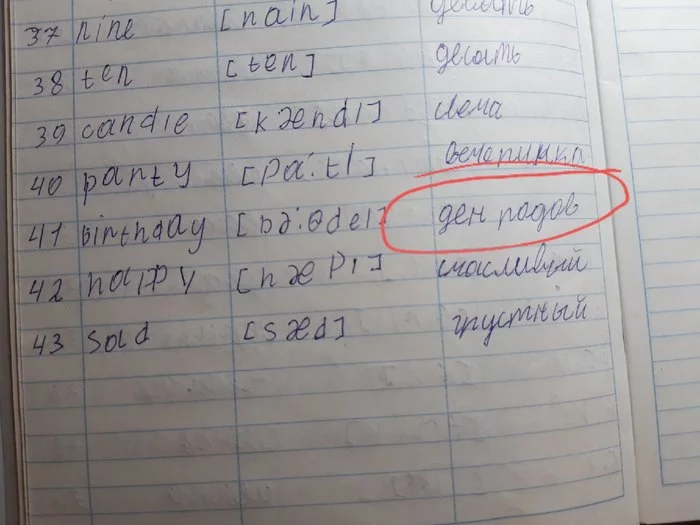 37 nine [nain] десать
38 ten [ten] десать
39 candle [kændl] свеча
40 party [pa:tI] вечеринка
41 birthday [bə:θdeI] ден родов
42 happy [hæpI] счасливый
43 sad [sæd] грустный